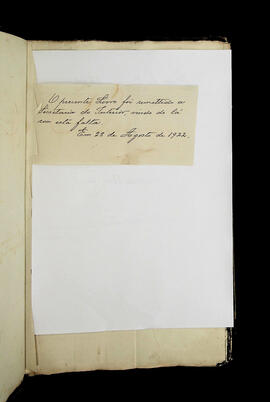 O presente Livro foi remettido a
Secretaria do Interior, vindo de lá
com esta falta.
Em 28 de Agosto de 1922.